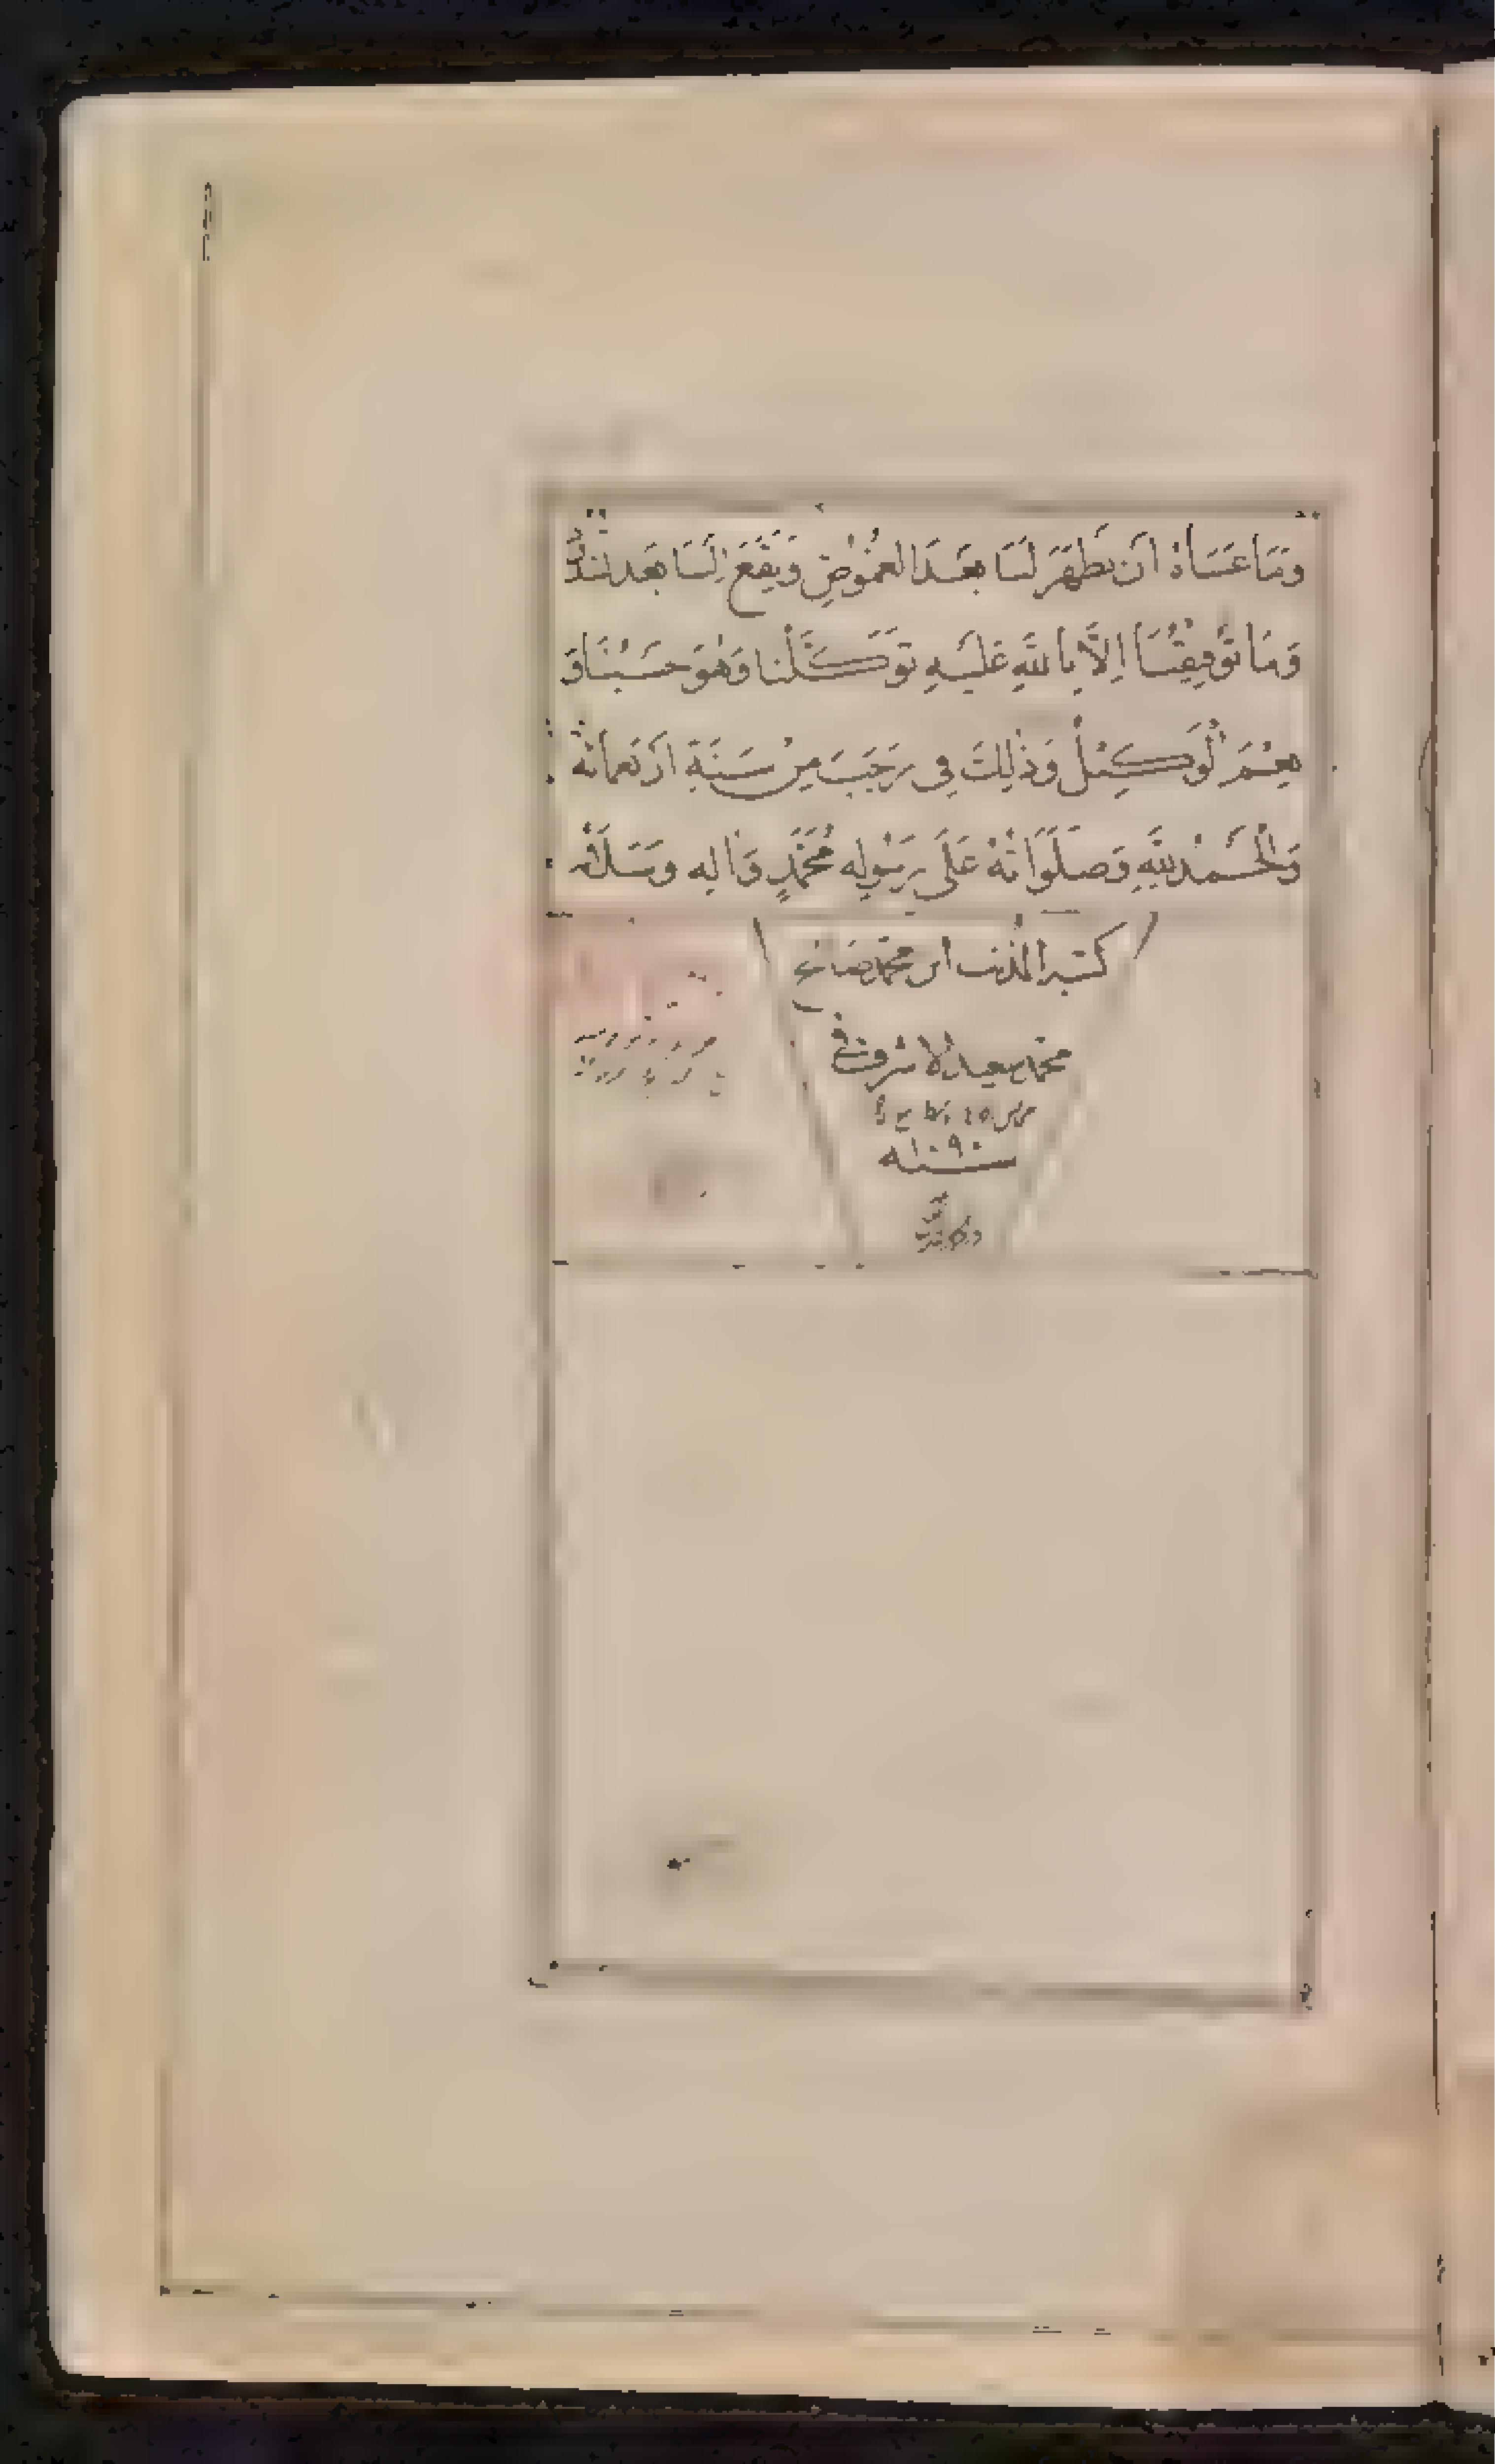 وَمَا عَسَاهُ اَن يَظْهَرَ لَنَا بَعْدَ الْغُمُوضِ وَيَقَعَ اِلَيْنَا بَعْدَ
وَمَا تَوْفِيقُنَا اِلَّا بِاللَّهِ عَلَيْهِ تَوَكَّلْنَا وَهُوَ حَسْبُنَا وَ
نِعْمَ الْوَكِيْلُ وَذٰلِكَ فِى رَجَبَ مِنْ سَنَةِ اَرْبَعمِائَة
وَالْحَمْدُ لِلَّهِ وَصَلَوَاتُهُ عَلَى رَسُولِه مُحَمَّدٍ وَاٰلِه وَسَلَامُه
كتبه المذنب ابن محمد صالح
محمد سعيد الاشرفى
سنه ١٠٩٠